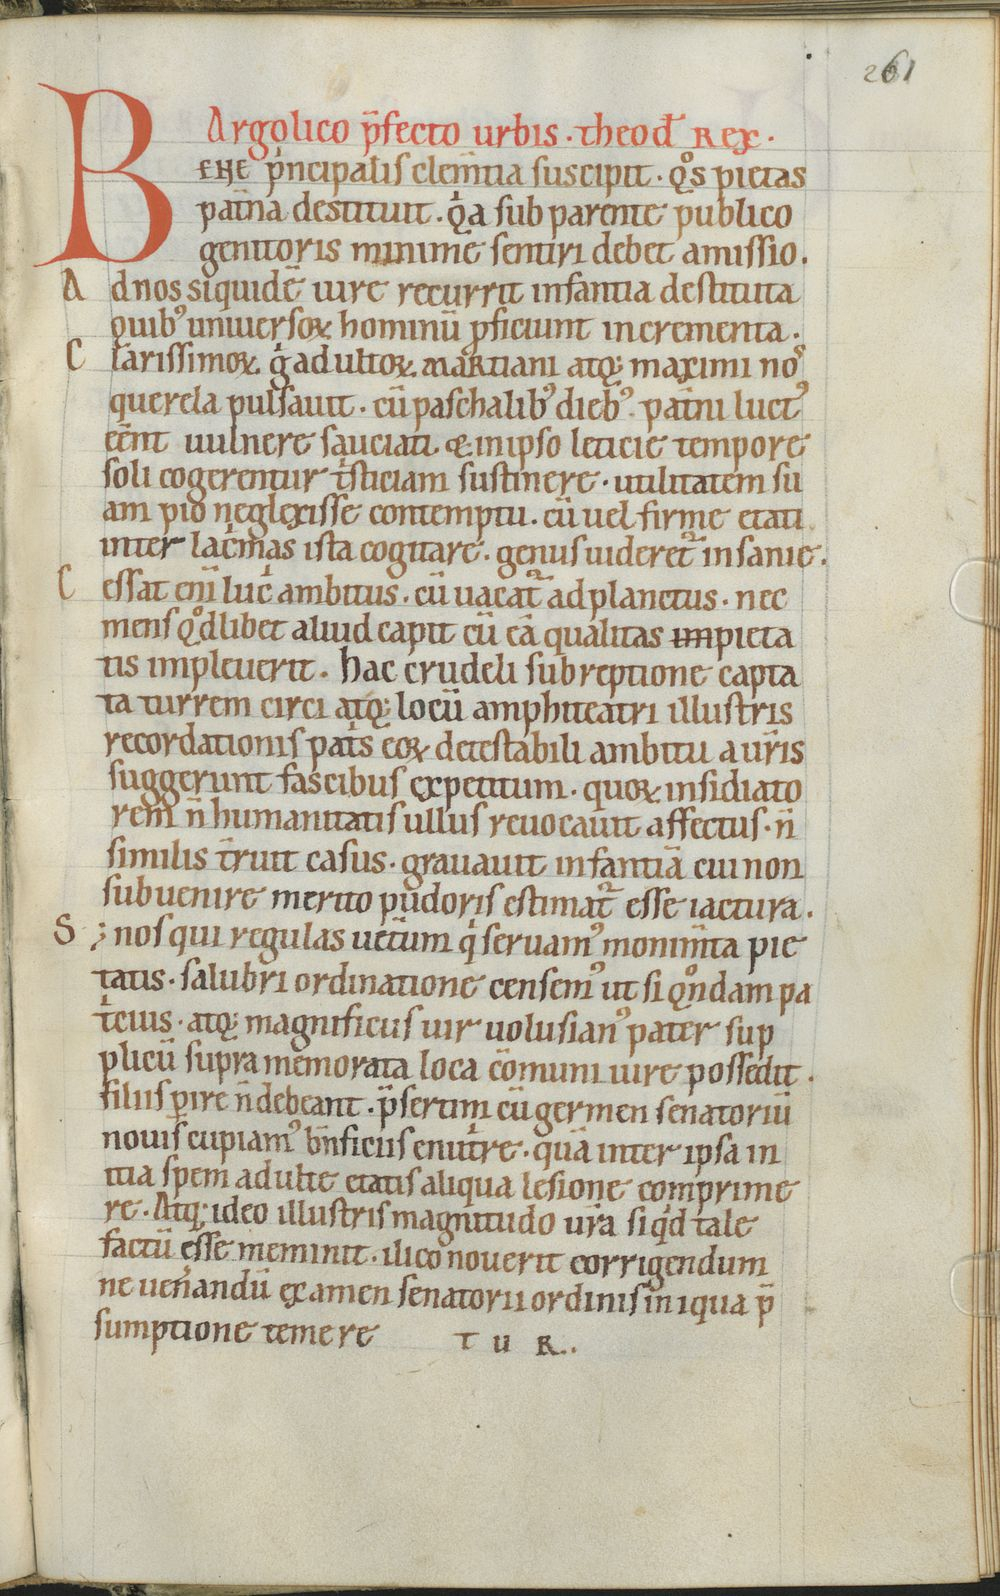 261
Argolico p̄fecto urbis · theod̄ Rex ·
BENE pͥncipalis clem̄tia suscipit · qͦs pietas
pat̄na destituit · qͣa sub parente publico
genitoris minime sentiri debet amissio.
Ad nos siquidē iure recurrit infantia destituta
quibꝰ universoꝝ hominū proficiunt incrementa ·
Clarissimoꝝ gͥ adultoꝝ martiani atq; maximi noˢ
querela pulsavit · cū paschalibꝰ diebꝰ pat̄ni luctꝰ
eēnt vulnere sauciati · & in ipso leticie tempore
soli cogerentur tͥsticiam sustinere · utilitatem su
am pio neglexisse contemptu · cū vel firme etati
inter lacͥmas ista cogitare · genus videret᷑ insanie ·
Cessat eni᷑ lucͥ ambitus · cū vacat᷑ ad planctus · nec
mens qͦdlibet aliud capit cū eā qualitas impieta
tis impleverit · hac crudeli subreptione capta
ta turrem circi atq; locū amphiteatri illustris
recordationis patͥs eoꝝ detestabili ambitu a vr̄is
suggerunt fascibus expetitum · quoꝝ insidiato
rem n̄ humanitatis ullus revocavit affectus · n̄
similis t̄ruit casus · gravavit infantiā cui non
subvenire merito pudoris estimat᷑ esse iactura.
S; nos qui regulas vet̄um qͥ servamꝰ monim̄ta pie
tatis · salubri ordinatione censemꝰ ut si qͦndam pa
tͥcius · atq; magnificus vir volusianꝰ pater sup
plicū supra memorata loca cōmuni iure possedit ·
filiis ꝑire n̄ debeant · p̄sertim cū germen senatoriū
novis cupiamꝰ bn̄ficiis enutͥre · quā inter ipsa in
itia spem adulte etatis aliqua lesione comprime
re · Atq; ideo illustris magnitudo vr̄a si qͥd tale
factū esse meminit · ilico noverit corrigendum
ne ven̄andū examen senatorii ordinis iniqua p̄
sumptione temere T U R..